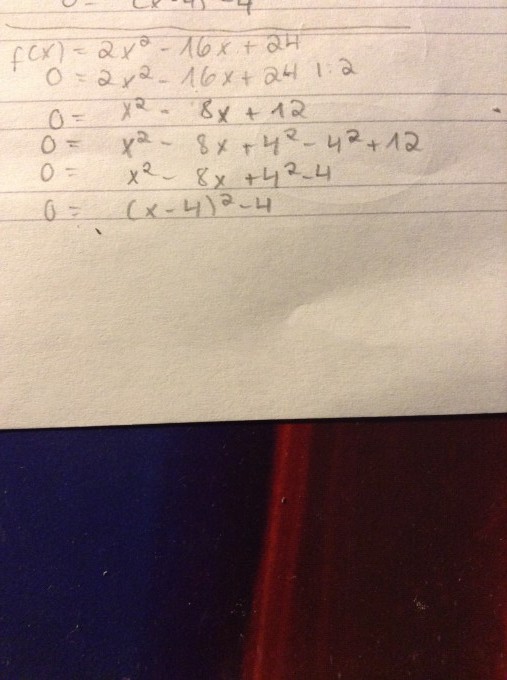 0= (x-4)²-4
f(x) = 2x² - 16x + 24
0 = 2x² - 16x + 24 | : 2
0 = x² - 8x + 12
0 = x² - 8x + 4² - 4² + 12
0 = x² - 8x + 4² - 4
0 = (x - 4)² - 4